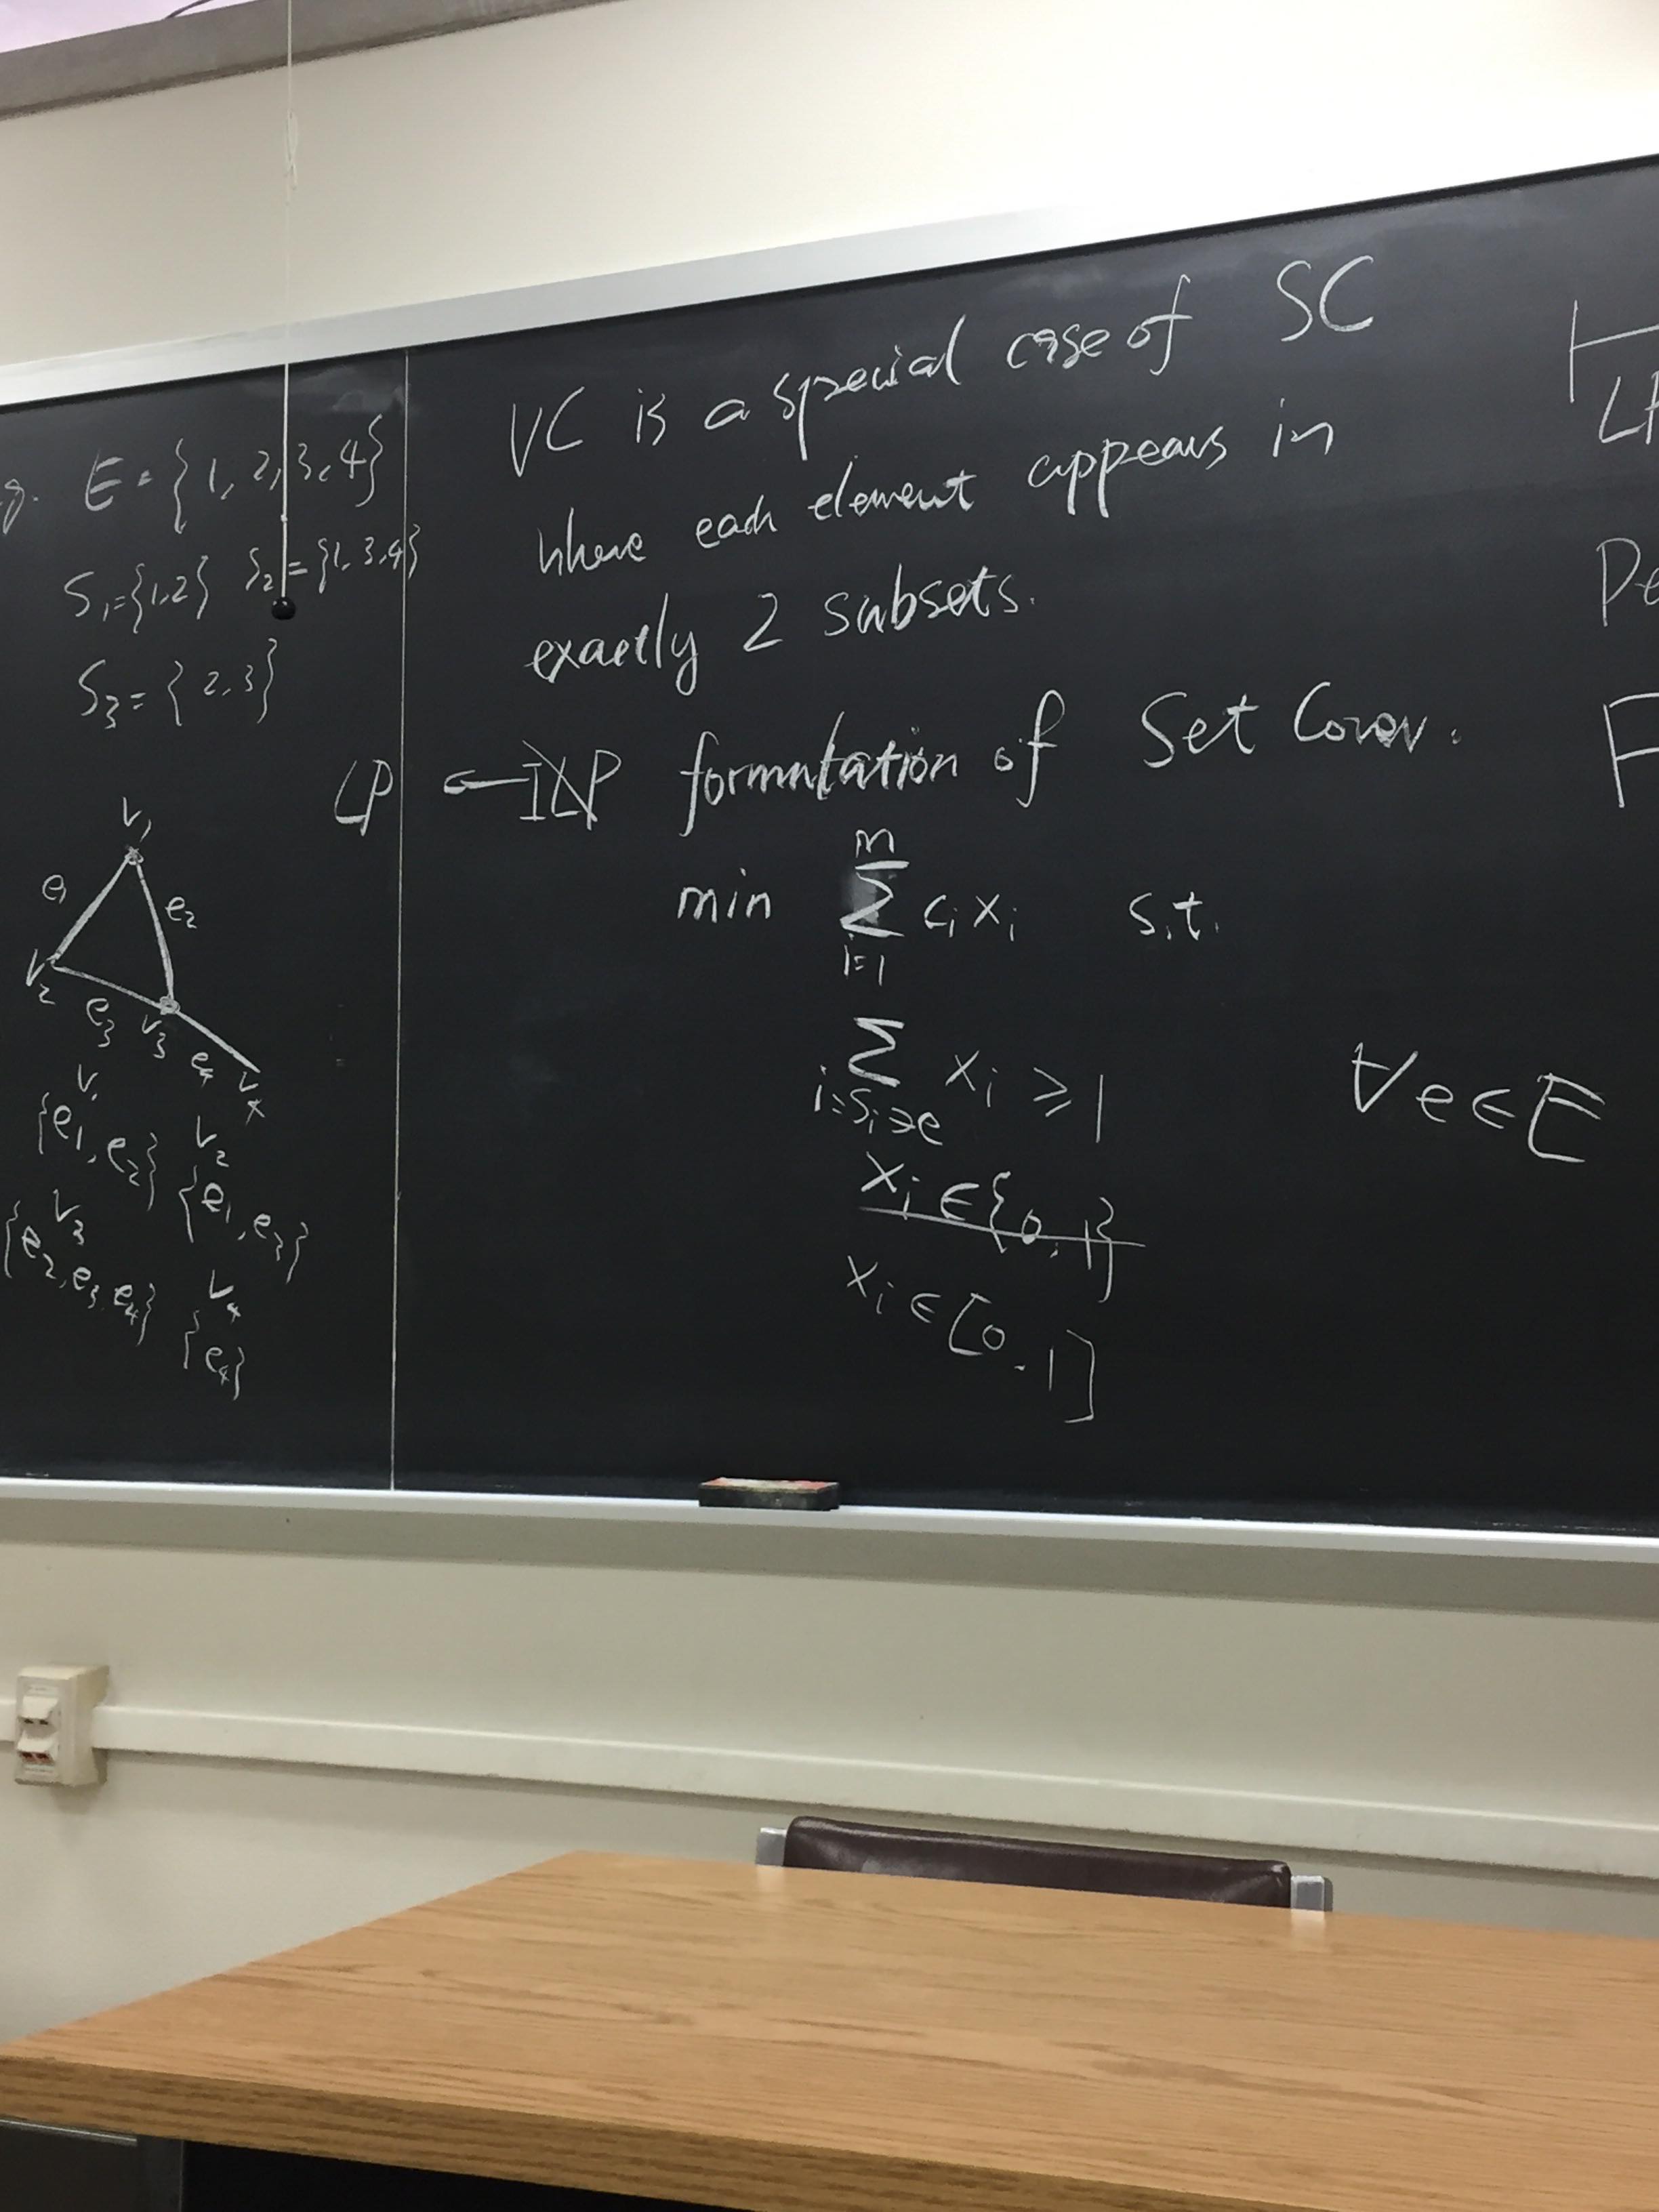 g. E = {1, 2, 3, 4}
S₁={1,2} S₂={1,3,4}
S₃={2,3}
V₁
e₁
e₂
V₂
e₃ V₃
e₄ V₄
V₁
{e₁, e₂} V₂
{e₁, e₃}
V₃
{e₂, e₃, e₄} V₄
{e₄}
VC is a special case of SC
where each element appears in
exactly 2 subsets.
LP ← ILP formulation of Set Cover.
min ∑_{i=1}^{m} cᵢxᵢ s.t.
∑_{i:Sᵢ∋e} xᵢ ≥ 1 ∀e∈E
xᵢ∈{0,1}
xᵢ∈[0,1]
LP
De
F